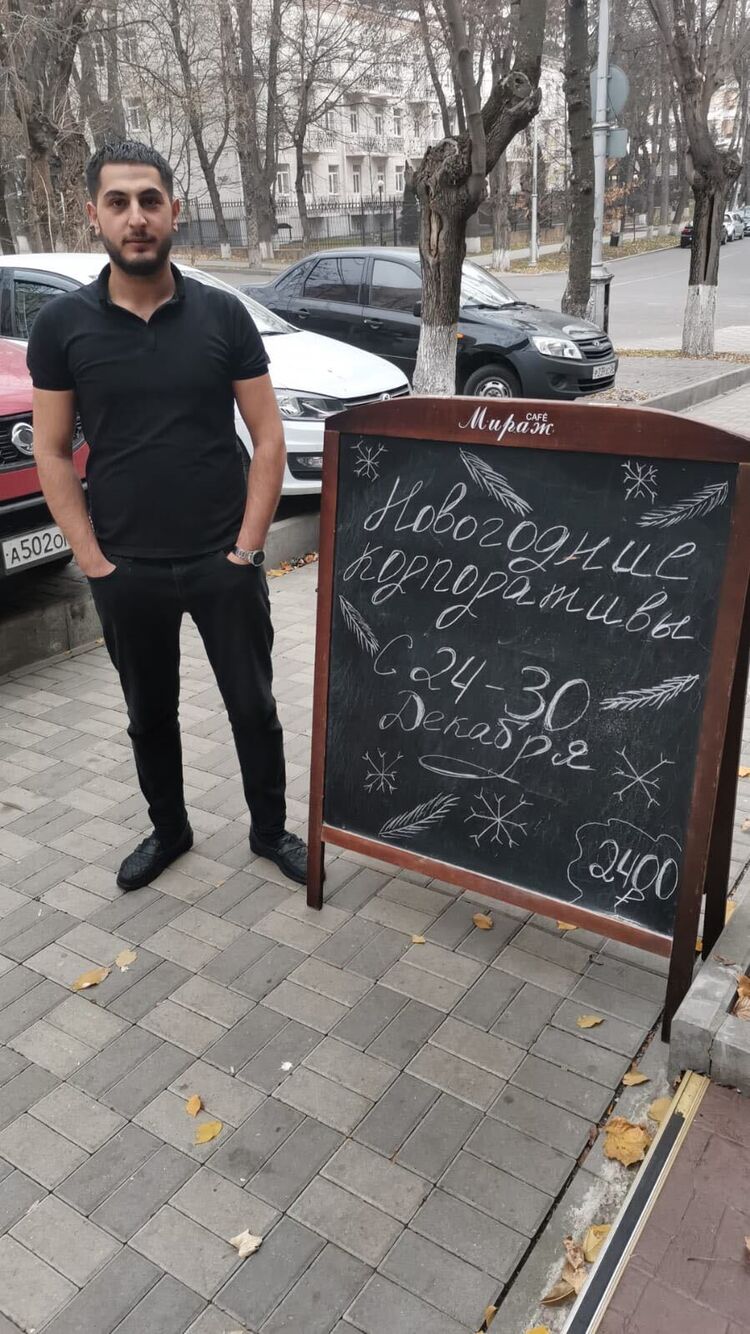 CAFÉ
Мираж
Новогодние
корпоративы
С 24-30
Декабря
2400
₽
А502О